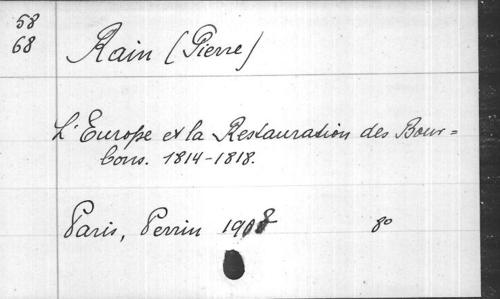 58
68
Rain (Pierre)
L'Europe et la Restauration des Bour=
bons. 1814-1818.
Paris, Perrin 1908 8°